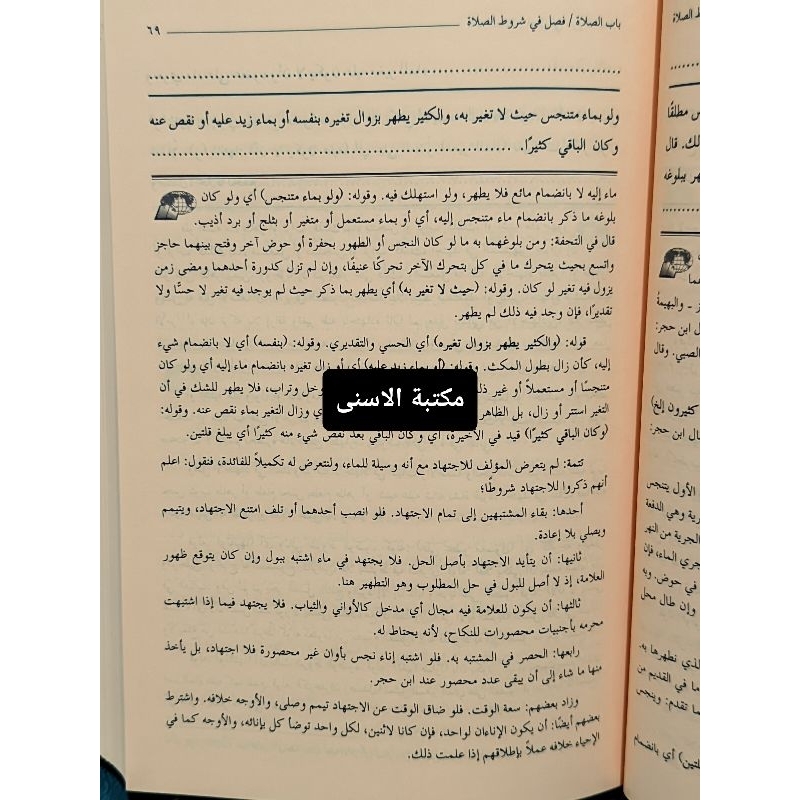 باب الصلاة / فصل في شروط الصلاة ٦٩
ولو بماء متنجس حيث لا تغير به، والكثير يطهر بزوال تغيره بنفسه أو بماء زيد عليه أو نقص عنه
وكان الباقي كثيرًا.
ماء إليه لا بانضمام مائع فلا يطهر، ولو استهلك فيه. وقوله: (ولو بماء متنجس) أي ولو كان
بلوغه ما ذكر بانضمام ماء متنجس إليه، أي أو بماء مستعمل أو متغير أو بثلج أو برد أذيب.
قال في التحفة: ومن بلوغهما به ما لو كان النجس أو الطهور بحفرة أو حوض آخر وفتح بينهما حاجز
واتسع بحيث يتحرك ما في كل بتحرك الآخر تحركًا عنيفًا، وإن لم تزل كدورة أحدهما ومضى زمن
يزول فيه تغير لو كان. وقوله: (حيث لا تغير به) أي يطهر بما ذكر حيث لم يوجد فيه تغير لا حسًّا ولا
تقديرًا، فإن وجد فيه ذلك لم يطهر.
قوله: (والكثير يطهر بزوال تغيره) أي الحسي والتقديري. وقوله: (بنفسه) أي لا بانضمام شيء
إليه، كأن زال بطول المكث. وقوله: (أو بماء زيد عليه) أي أو زال تغيره بانضمام ماء إليه أي ولو كان
متنجسًا أو مستعملاً أو غير وخل وتراب، فلا يطهر للشك في أن
التغير استتر أو زال، بل الظاهر وزال التغير بماء نقص عنه. وقوله:
(وكان الباقي كثيرًا) قيد في الأخيرة، أي وكان الباقي بعد نقص شيء منه كثيرًا أي يبلغ قلتين.
مكتبة الاسنى
تتمة: لم يتعرض المؤلف للاجتهاد مع أنه وسيلة للماء، ولنتعرض له تكميلاً للفائدة، فنقول: اعلم
أنهم ذكروا للاجتهاد شروطًا؛
أحدها: بقاء المشتبهين إلى تمام الاجتهاد. فلو انصب أحدهما أو تلف امتنع الاجتهاد، ويتيمم
ويصلي بلا إعادة.
ثانيها: أن يتأيد الاجتهاد بأصل الحل. فلا يجتهد في ماء اشتبه ببول وإن كان يتوقع ظهور
العلامة، إذ لا أصل للبول في حل المطلوب وهو التطهير هنا.
ثالثها: أن يكون للعلامة فيه مجال أي مدخل كالأواني والثياب. فلا يجتهد فيما إذا اشتبهت
محرمه بأجنبيات محصورات للنكاح، لأنه يحتاط له.
رابعها: الحصر في المشتبه به. فلو اشتبه إناء نجس بأوان غير محصورة فلا اجتهاد، بل يأخذ
منها ما شاء إلى أن يبقى عدد محصور عند ابن حجر.
وزاد بعضهم: سعة الوقت. فلو ضاق الوقت عن الاجتهاد تيمم وصلى، والأوجه خلافه. واشترط
بعضهم أيضًا: أن يكون الإناءان لواحد، فإن كانا لاثنين، لكل واحد توضأ كل بإنائه، والأوجه كما في
الإحياء خلافه عملاً بإطلاقهم إذا علمت ذلك.